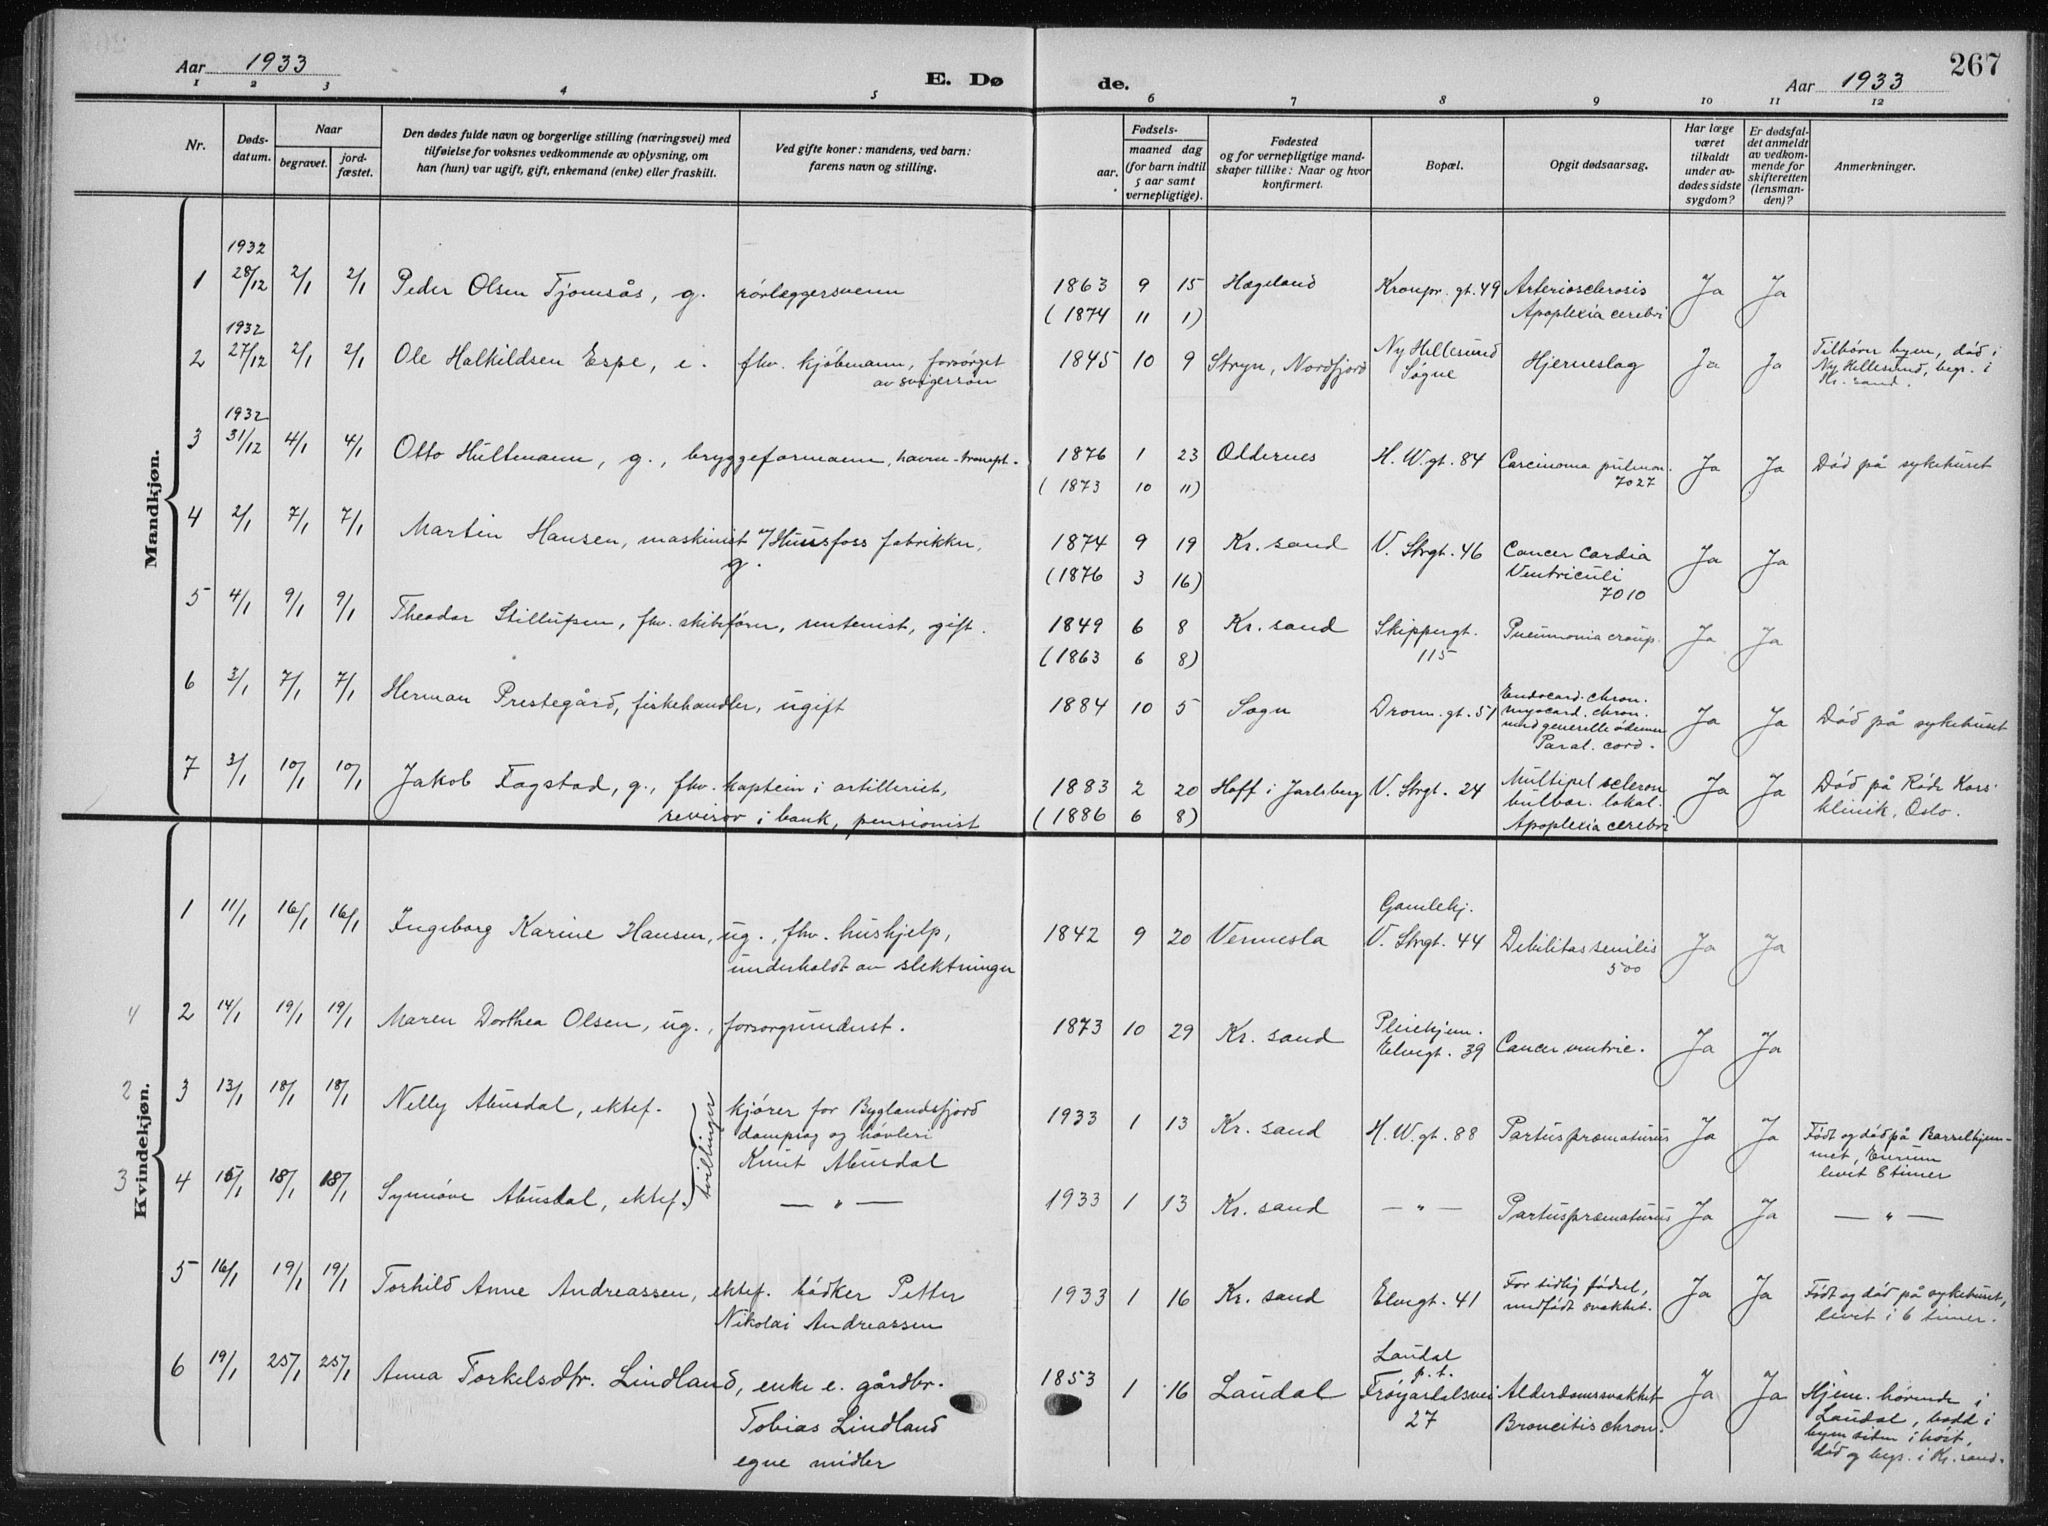 Aar 1933
E. Dø
de.
Aar 1933
267
1 2 3 4 5 6 7 8 9 10 11 12
Nr.
Døds-
datum.
Naar
begravet.
jord-
fæstet.
Den dødes fulde navn og borgerlige stilling (næringsvei) med
tilføielse for voksnes vedkommende av oplysning, om
han (hun) var ugift, gift, enkemand (enke) eller fraskilt.
Ved gifte koner: mandens, ved barn:
farens navn og stilling.
Fødsels-
aar.
maaned dag
(for barn indtil
5 aar samt
vernepligtige).
Fødested
og for vernepligtige mand-
skaper tillike: Naar og hvor
konfirmert.
Bopæl.
Opgit dødsaarsag.
Har læge
været
tilkaldt
under av-
dødes sidste
sygdom?
Er dødsfal-
det anmeldt
av vedkom-
mende for
skifteretten
(lensman-
den)?
Anmerkninger.
Mandkjøn.
1932
1 28/12 2/1 2/1 Peder Olsen Tjomsås, g. rørlæggersvenn 1863 9 15 Hægeland Kronpr. gt. 49 Arteriosclerosis Ja Ja
(1874 11 1) Apoplexia cerebri
1932
2 27/12 2/1 2/1 Ole Halkildsen Espe, e. fhv. kjøbmann, forsørget 1845 10 9 Stryn, Nordfjord Ny Hellesund Hjerneslag Ja Ja Tilhører byen, død i
av svigersøn Søgne Ny Hellesund, begr. i
Kr. sand.
1932
3 31/12 4/1 4/1 Otto Hultmann, g., bryggeformann, havne-transpt. 1876 1 23 Oddernes H. W. gt. 84 Carcinoma pulmon. Ja Ja Død på sykehuset
(1873 10 11) 7027
4 2/1 7/1 7/1 Martin Hansen, maskinist v/Hunsfoss fabrikker, 1874 9 19 Kr. sand V. Strgt. 46 Cancer cardia Ja Ja
g. (1876 3 16) Ventriculi
7010
5 4/1 9/1 9/1 Theodor Stillufsen, fhv. skibsfører, rentenist, gift. 1849 6 8 Kr. sand Skippergt. Pneumonia croup. Ja Ja
(1863 6 8) 115
6 3/1 7/1 7/1 Herman Prestegård, fiskehandler, ugift 1884 10 5 Sogn Dronn. gt. 51 Endocard. chron. Ja Ja Død på sykehuset
myocard. chron.
med generelle ødemer
Paral. cord.
7 3/1 10/1 10/1 Jakob Fagstad, g., fhv. kaptein i artilleriet, 1883 2 20 Hoff i Jarlsberg V. Strgt. 24 Multipel scleron Ja Ja Død på Røde Kors'
revisor i bank, pensionist (1886 6 8) bulbar. lokal. klinik, Oslo.
Apoplexia cerebri
Kvindekjøn.
1 11/1 16/1 16/1 Ingeborg Karine Hansen, ug., fhv. hushjelp, 1842 9 20 Vennesla Gamlehj. Debilitas senilis Ja Ja
underholdt av slektninger V. Strgt. 44 500
4 2 14/1 19/1 19/1 Maren Dorthea Olsen, ug., forsorgsunderst. 1873 10 29 Kr. sand Pleiehjem. Cancer ventric. Ja Ja
Elvegt. 39
2 3 13/1 18/1 18/1 Nelly Abusdal, ektef. tvillinger kjører for Byglandsfjord 1933 1 13 Kr. sand H. W. gt. 88 Partus præmaturus Ja Ja Født og død på Barselhjem-
dampsag og høvleri met,
Knut Abusdal levet 8 timer
3 4 15/1 18/1 18/1 Synnøve Abusdal, ektef. — " — 1933 1 13 Kr. sand — " — Partus præmaturus Ja Ja — " —
5 16/1 19/1 19/1 Torhild Anne Andreassen, ektef. bødker Petter 1933 1 16 Kr. sand Elvegt. 41 For tidlig fødsel, Ja Ja Født og død på sykehuset,
Nikolai Andreassen medfødt svakhet. levet i 6 timer.
6 19/1 25/1 25/1 Anna Torkelsdtr. Lindland, enke e. gårdbr. 1853 1 16 Laudal Laudal Alderdomssvakhet Ja Ja Hjem. hørende i
Tobias Lindland p.t. Broncitis chron. Laudal, bodd i
egne midler 27 byen siden i høst,
død og begr. i Kr. sand.